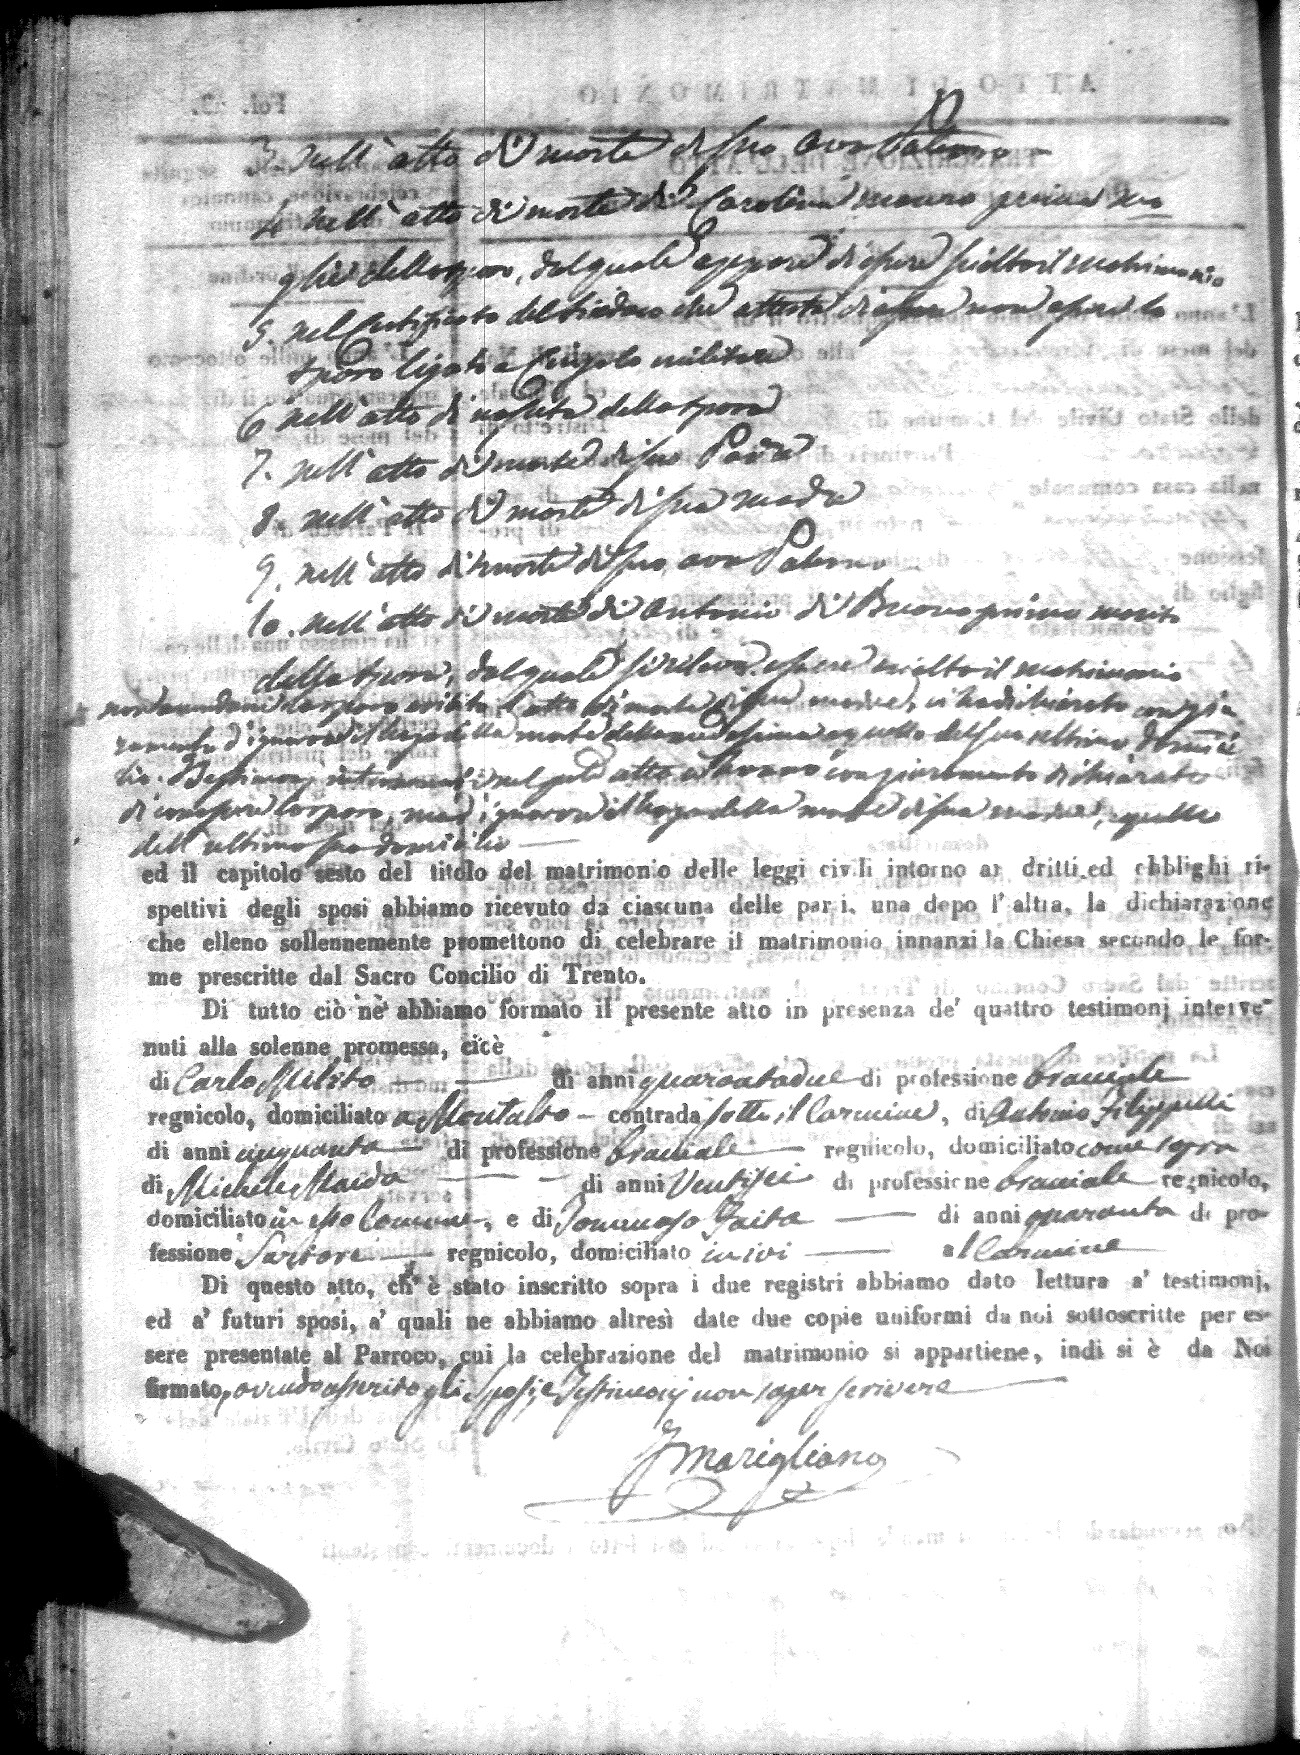 3. nell'atto di morte di suo avo Paterno
4. nell'atto di morte di Carolina Mauro prima mo
glie dello sposo, dal quale appare di essere sciolto il matrimonio
5. nel Certificato del Sindaco che attesta di non essere lo
sposo ligato a Cingolo militare
6 nell'atto di nascita della sposa
7. nell'atto di morte di suo Padre
8. nell'atto di morte di sua madre
9. nell'atto di morte di suo avo Paterno
10. nell'atto di morte di Antonio di Buono primo marito
della sposa, dal quale si rileva essere sciolto il matrimonio
non avendo lo sposo esibito l'atto di morte di sua madre, ci ha dichiarato con giu
ramento d'ignorare il luogo della morte della medesima e quello del suo ultimo domici
lio. Testimonj nel atto con giuramento dichiarato
di conoscere lo sposo, ma ignorare il luogo della morte di sua madre, e quello
dell'ultimo suo domicilio
ed il capitolo sesto del titolo del matrimonio delle leggi civili intorno ai dritti ed obblighi ri-
spettivi degli sposi abbiamo ricevuto da ciascuna delle parti, una dopo l'altra, la dichiarazione
che elleno sollennemente promettono di celebrare il matrimonio innanzi la Chiesa secondo le for-
me prescritte dal Sacro Concilio di Trento.
Di tutto ciò nè abbiamo formato il presente atto in presenza de' quattro testimonj interve-
nuti alla solenne promessa, cioè
di Carlo Milito di anni quarantadue di professione bracciale
regnicolo, domiciliato a Montalto contrada sotto il Carmine, di Antonio Filippelli
di anni cinquanta di professione bracciale regnicolo, domiciliato come sopra
di Michele Maida di anni Ventisei di professione bracciale regnicolo,
domiciliato in esso Comune, e di Tommaso Gaita di anni quaranta di pro-
fessione Sartore regnicolo, domiciliato in ivi al Carmine
Di questo atto, ch' è stato inscritto sopra i due registri abbiamo dato lettura a' testimonj,
ed a' futuri sposi, a' quali ne abbiamo altresì date due copie uniformi da noi sottoscritte per es-
sere presentate al Parroco, cui la celebrazione del matrimonio si appartiene, indi si è da Noi
firmato, avendo asserito gli Sposi, e Testimonj non saper scrivere
Marigliano